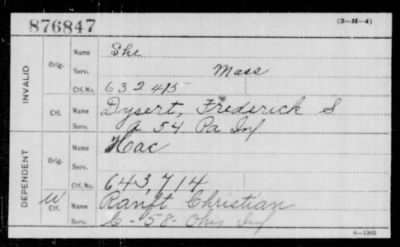 876847
(3—H—4)
INVALID
Orig.
Name She
Serv. Mass
Ctf. No. 632415
Ctf.
Name Dysert, Frederick S
Serv. A 54 Pa Inf
DEPENDENT
Orig.
Name Hac
Serv.
Ctf. No. 643,714
W Ctf.
Name Ranft Christian
Serv. C - 58 Ohio Inf